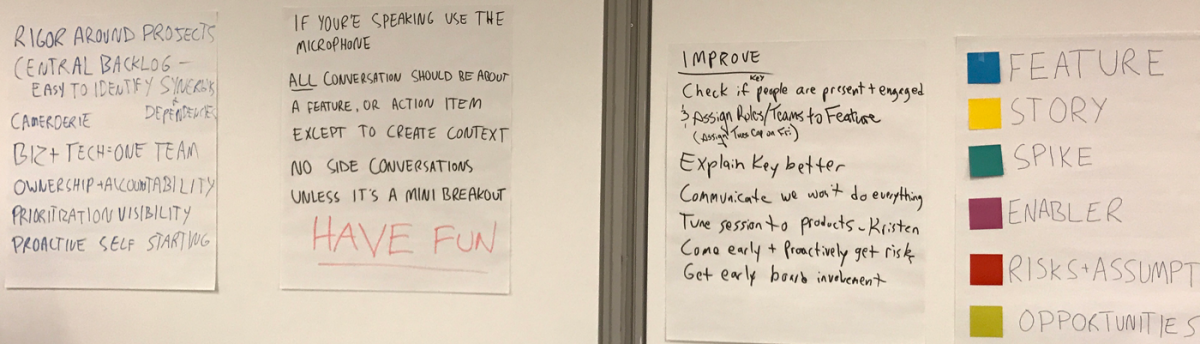 RIGOR AROUND PROJECTS
CENTRAL BACKLOG -
EASY TO IDENTIFY SYNERGIES
& DEPENDENCIES
CAMERDERIE
BIZ + TECH = ONE TEAM
OWNERSHIP + ACCOUNTABILITY
PRIORITIZATION VISIBILITY
PROACTIVE SELF STARTING
IF YOU'RE SPEAKING USE THE
MICROPHONE
ALL CONVERSATION SHOULD BE ABOUT
A FEATURE, OR ACTION ITEM
EXCEPT TO CREATE CONTEXT
NO SIDE CONVERSATIONS
UNLESS IT'S A MINI BREAKOUT
HAVE FUN
IMPROVE
KEY
Check if people are present + engaged
Assign Roles/Teams to Feature
(Assign Cap on Fri)
Explain Key better
Communicate we won't do everything
Tune session to products - Kristen
Come early + Proactively get risk
Get early board involvement
FEATURE
STORY
SPIKE
ENABLER
RISKS + ASSUMPT
OPPORTUNITIES